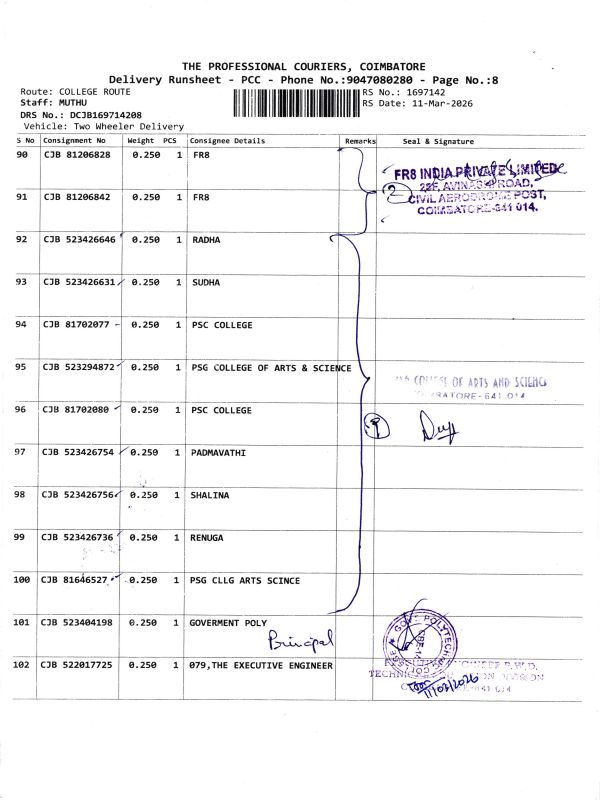 THE PROFESSIONAL COURIERS, COIMBATORE
Delivery Runsheet - PCC - Phone No.:9047080280 - Page No.:8
Route: COLLEGE ROUTE
RS No.: 1697142
Staff: MUTHU
RS Date: 11-Mar-2026
DRS No.: DCJB169714208
Vehicle: Two Wheeler Delivery
S No Consignment No Weight PCS Consignee Details Remarks Seal & Signature
90 CJB 81206828 0.250 1 FR8
FR8 INDIA PRIVATE LIMITED
22F, AVINASHI ROAD,
2
91 CJB 81206842 0.250 1 FR8
CIVIL AERODROME POST,
COIMBATORE-641 014.
92 CJB 523426646 0.250 1 RADHA
93 CJB 523426631 0.250 1 SUDHA
94 CJB 81702077 0.250 1 PSC COLLEGE
95 CJB 523294872 0.250 1 PSG COLLEGE OF ARTS & SCIENCE
COLLEGE OF ARTS AND SCIENCE
COIMBATORE-641 014
96 CJB 81702080 0.250 1 PSC COLLEGE
9
97 CJB 523426754 0.250 1 PADMAVATHI
98 CJB 523426756 0.250 1 SHALINA
99 CJB 523426736 0.250 1 RENUGA
100 CJB 81646527 0.250 1 PSG CLLG ARTS SCINCE
101 CJB 523404198 0.250 1 GOVERMENT POLY
Principal
GOVT POLYTECHNIC
102 CJB 522017725 0.250 1 079,THE EXECUTIVE ENGINEER
P.W.D.
DIVISION
641 014
11/03/2026